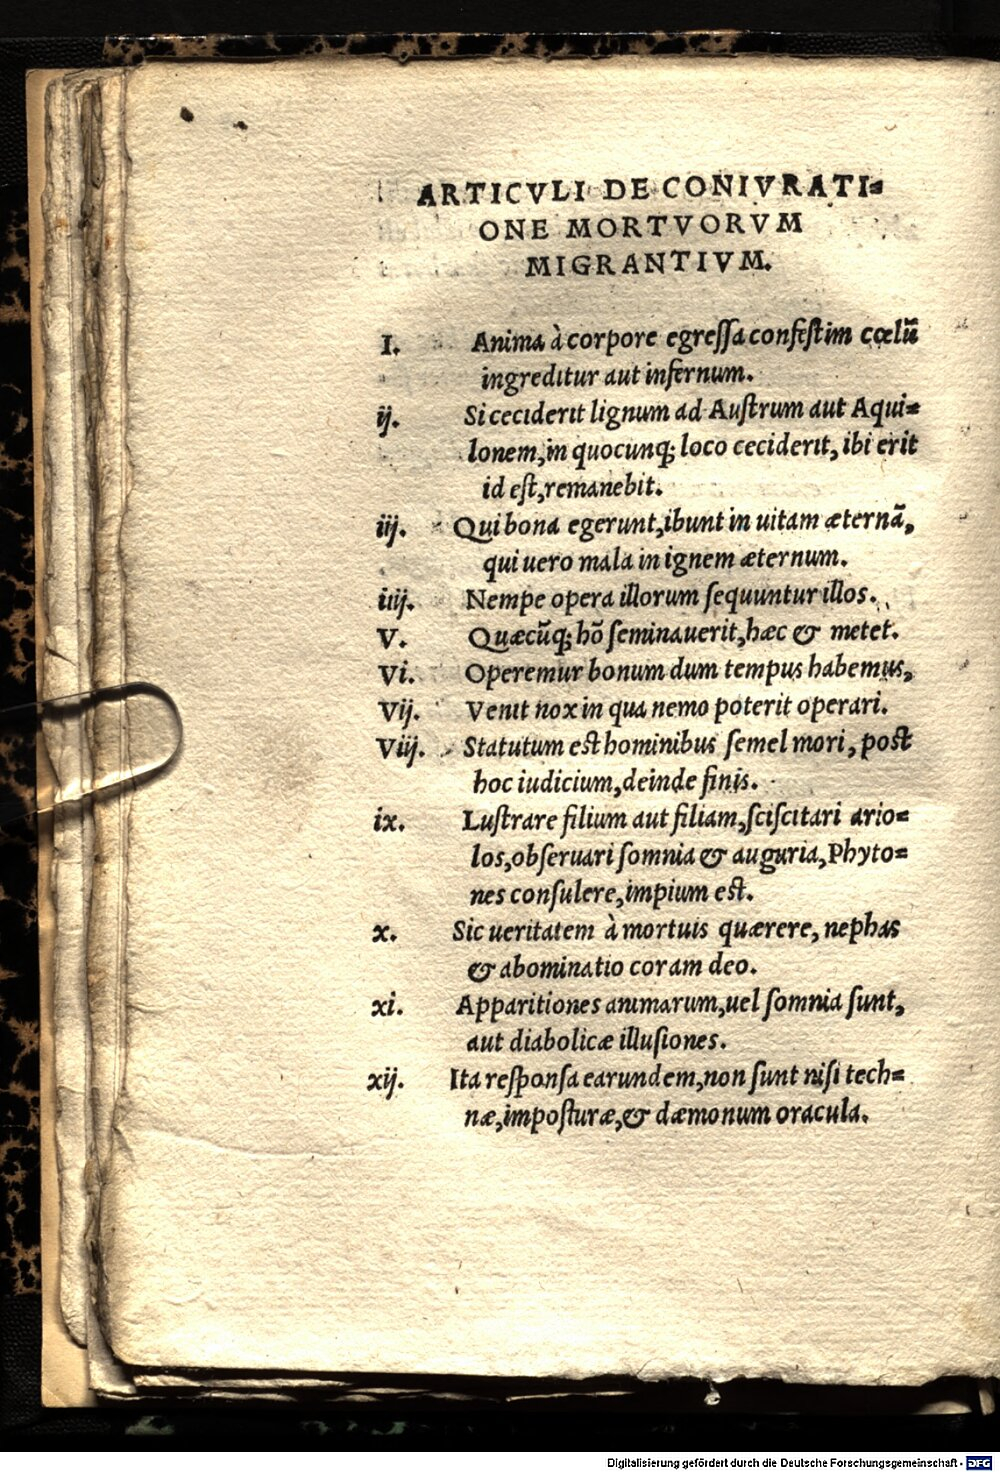 ARTICVLI DE CONIVRATI=
ONE MORTVORVM
MIGRANTIVM.
I. Anima à corpore egreſſa confeſtim cœlũ
ingreditur aut infernum.
ij. Si ceciderit lignum ad Auſtrum aut Aqui=
lonem, in quocunq; loco ceciderit, ibi erit
id eſt, remanebit.
iij. Qui bona egerunt, ibunt in uitam æternã,
qui uero mala in ignem æternum.
iiij. Nempe opera illorum ſequuntur illos.
V. Quæcũq; hõ ſeminauerit, hæc & metet.
Vi. Operemur bonum dum tempus habemus,
Vij. Venit nox in qua nemo poterit operari.
Viij. Statutum eſt hominibus ſemel mori, poſt
hoc iudicium, deinde finis.
ix. Luſtrare filium aut filiam, ſciſcitari ario=
los, obſeruari ſomnia & auguria, Phyto=
nes conſulere, impium eſt.
x. Sic ueritatem à mortuis quærere, nephas
& abominatio coram deo.
xi. Apparitiones animarum, uel ſomnia ſunt,
aut diabolicæ illuſiones.
xij. Ita reſponſa earundem, non ſunt niſi tech=
næ, impoſturæ, & dæmonum oracula.
Digitalisierung gefördert durch die Deutsche Forschungsgemeinschaft - DFG